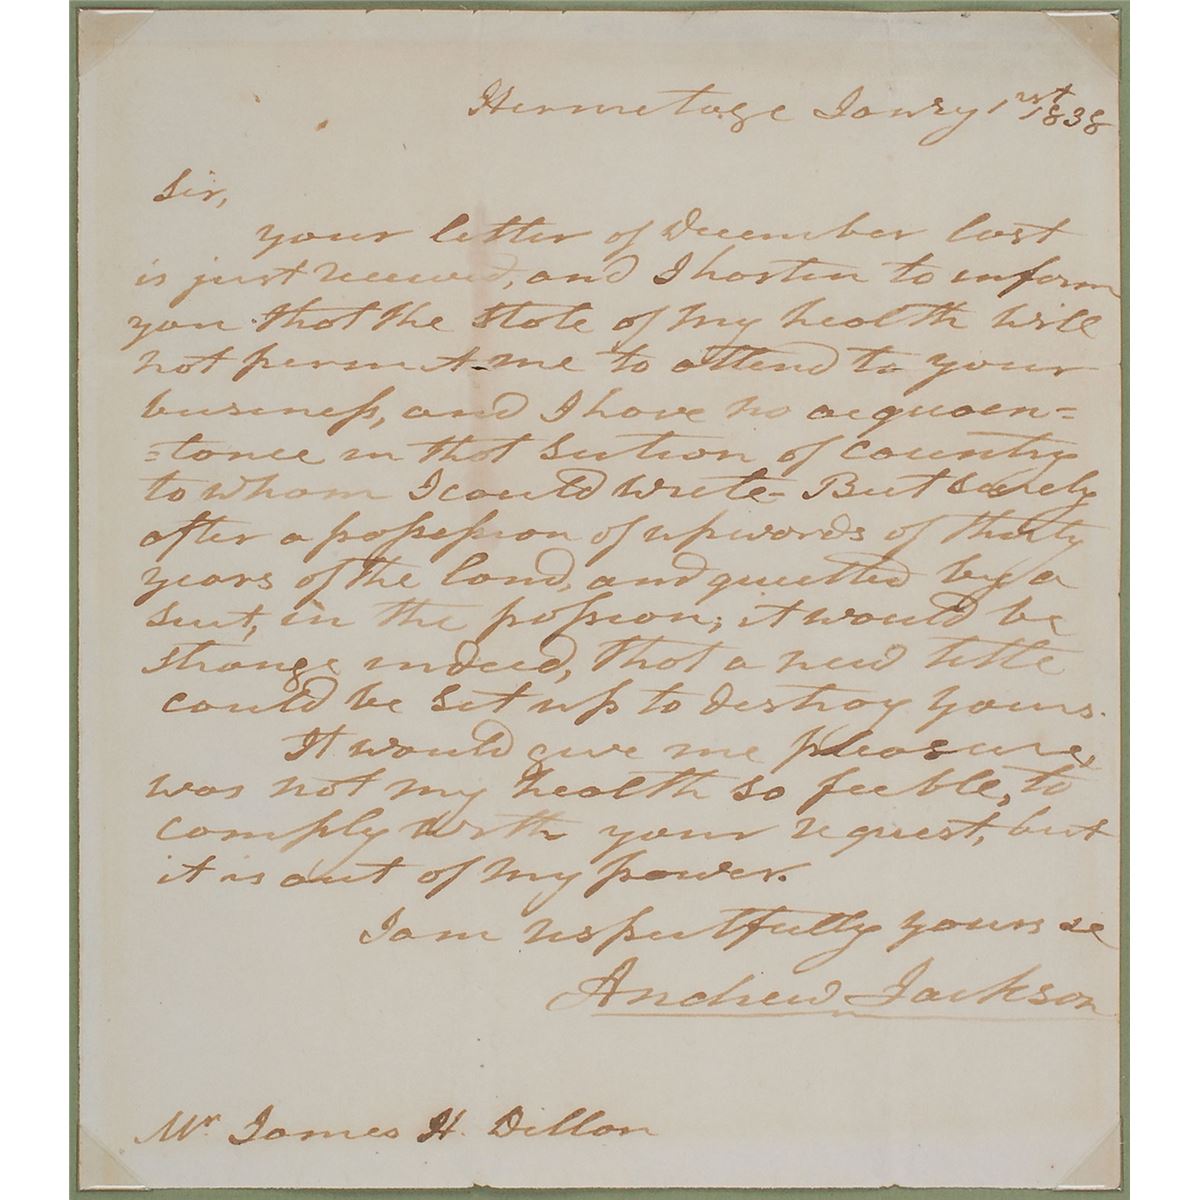 Hermetage Janry 1rst 1838
Sir,
your letter of December last
is just received, and I hasten to inform
you that the state of my health will
not permit me to attend to your
business, and I have no acquaen=
=tance in that section of country
to whom I could write – But surely
after a possession of upwords of thirty
years of the land, and quietted by a
suit, in the possion; it would be
strange indeed, that a new title
could be set up to destroy yours.
It would give me pleasure,
was not my health so feeble, to
comply with your request, but
it is out of my power.
I am respectfully yours &c
Andrew Jackson
Mr James H. Dillon